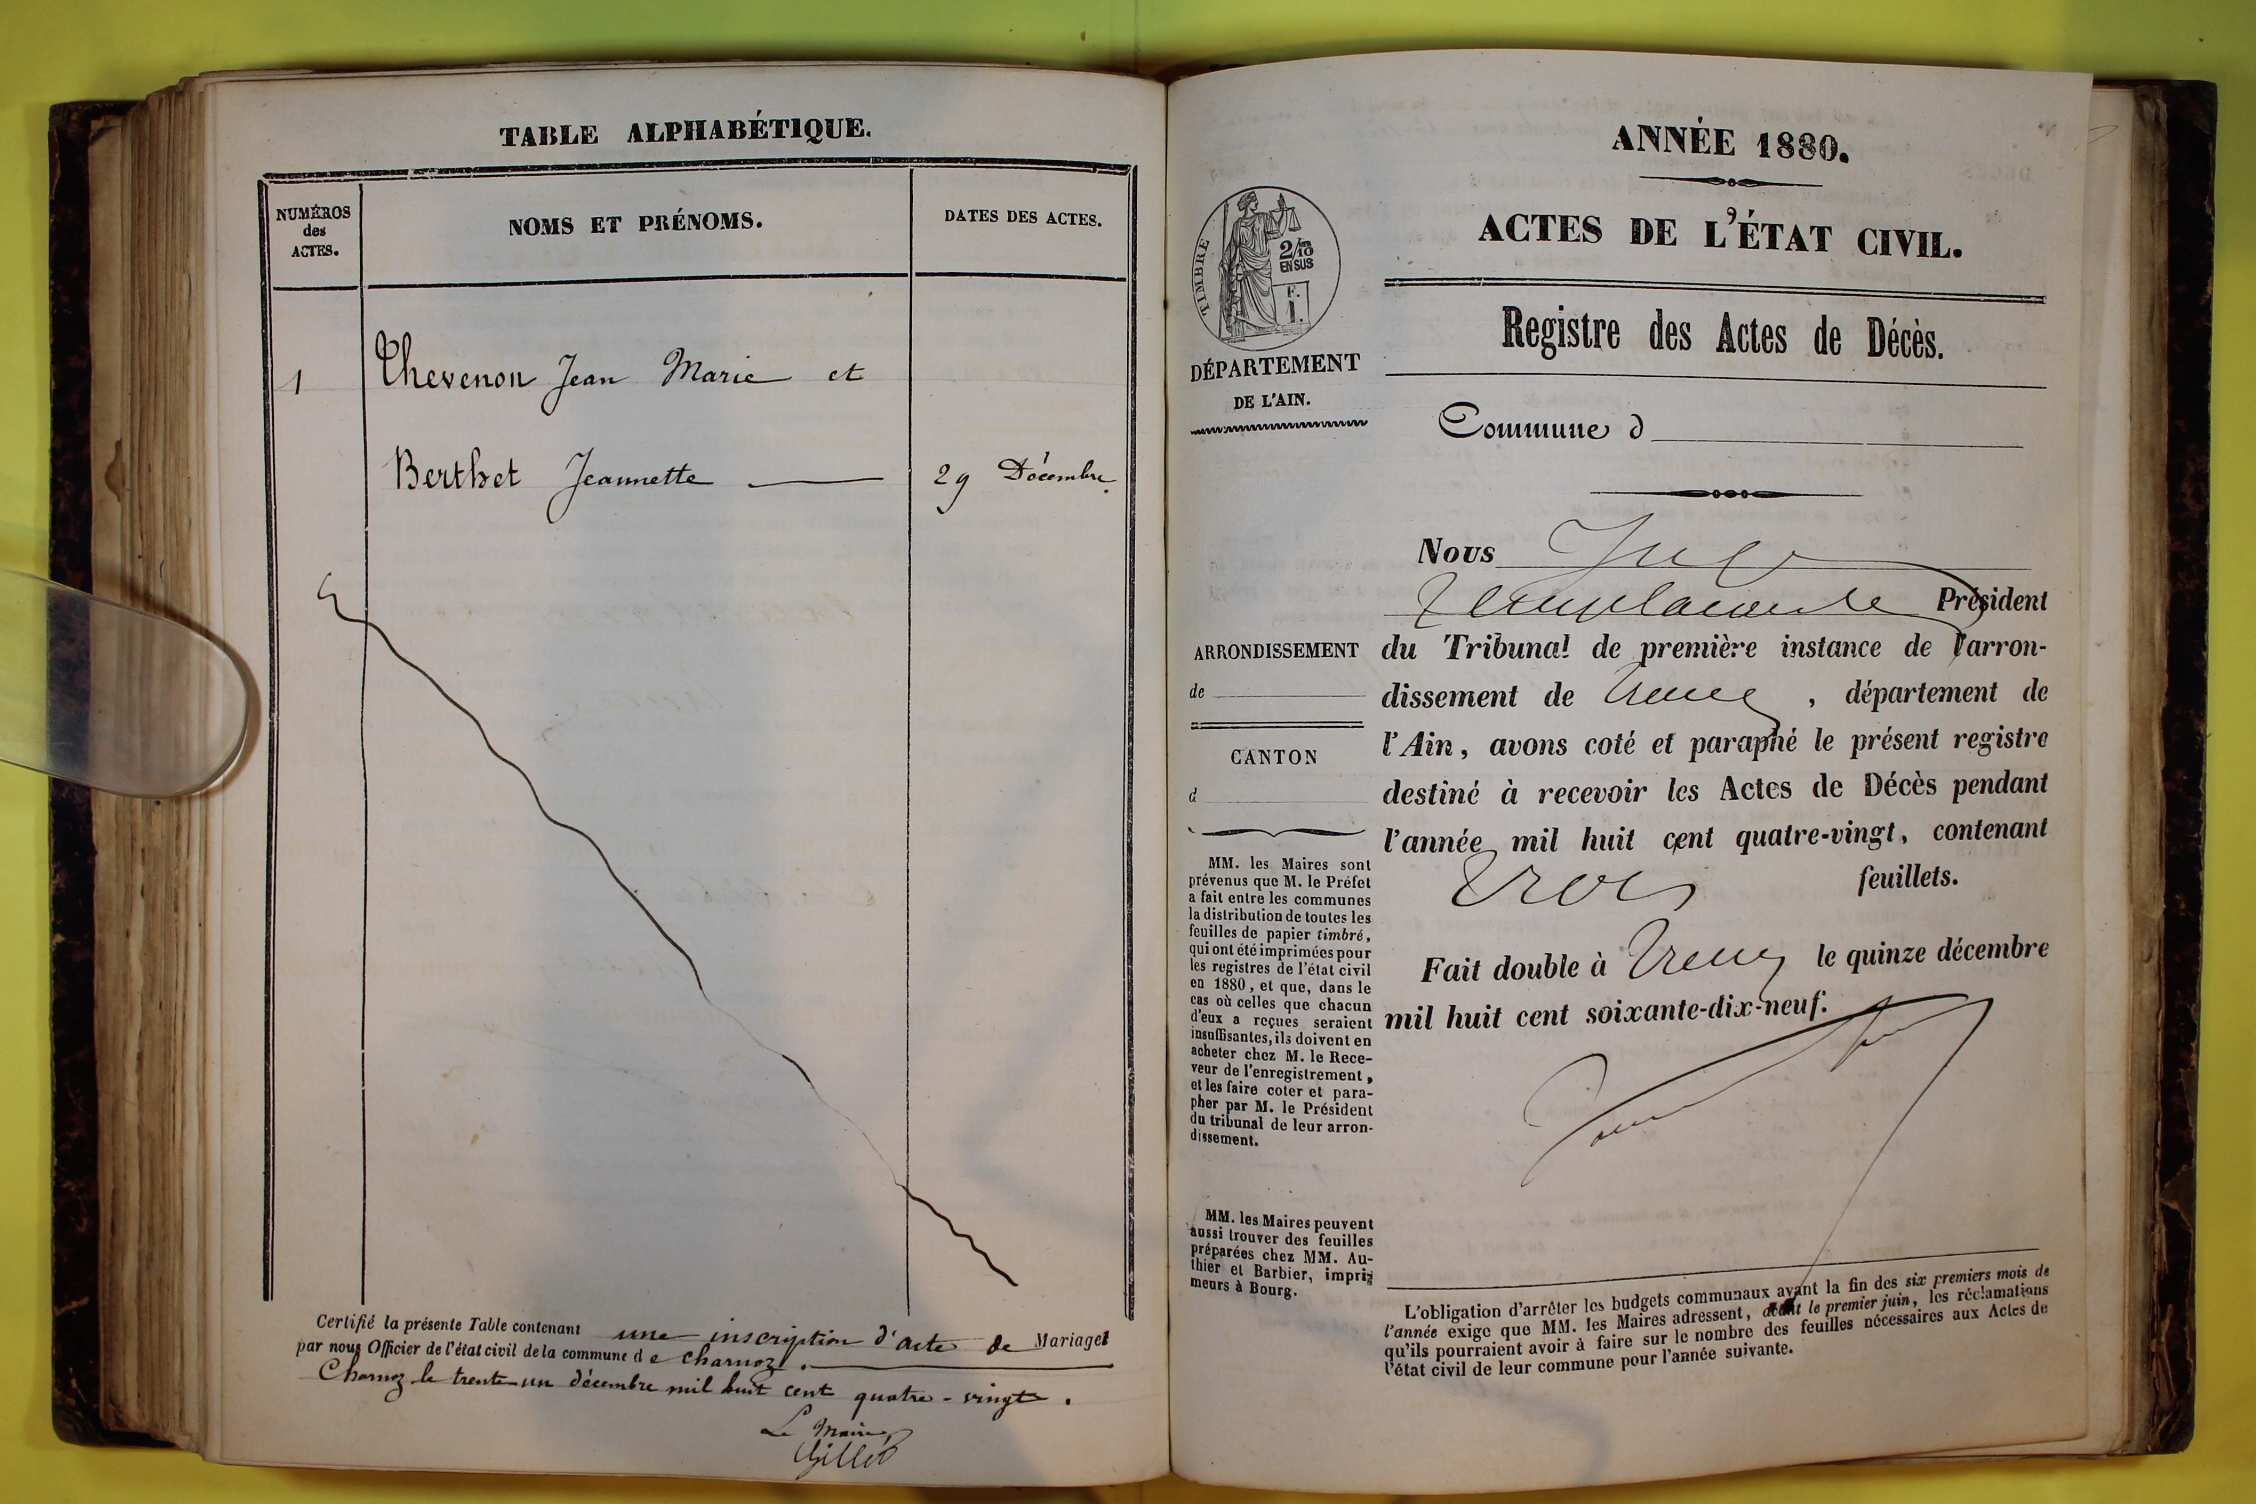 TABLE ALPHABÉTIQUE.
NUMÉROS
des
ACTES.
NOMS ET PRÉNOMS.
DATES DES ACTES.
1
Thevenon Jean Marie et
Berthet Jeannette
29 Décembre.
Certifié la présente Table contenant une inscription d'acte de Mariages
par nous Officier de l'état civil de la commune de Charnoz.
Charnoz le trente-un décembre mil huit cent quatre-vingt.
Le Maire,
Gillet
ANNÉE 1880.
ACTES DE L'ÉTAT CIVIL.
Registre des Actes de Décès.
TIMBRE
2/10
EN SUS
F.
1.
DÉPARTEMENT
DE L'AIN.
Commune d
Nous Juge
Président
du Tribunal de première instance de l'arron-
dissement de Trevoux, département de
l'Ain, avons coté et paraphé le présent registre
destiné à recevoir les Actes de Décès pendant
l'année mil huit cent quatre-vingt, contenant
trois feuillets.
Fait double à Trevoux le quinze décembre
mil huit cent soixante-dix-neuf.
ARRONDISSEMENT
de
CANTON
d
MM. les Maires sont
prévenus que M. le Préfet
a fait entre les communes
la distribution de toutes les
feuilles de papier timbré,
qui ont été imprimées pour
les registres de l'état civil
en 1880, et que, dans le
cas où celles que chacun
d'eux a reçues seraient
insuffisantes, ils doivent en
acheter chez M. le Rece-
veur de l'enregistrement,
et les faire coter et para-
pher par M. le Président
du tribunal de leur arron-
dissement.
MM. les Maires peuvent
aussi trouver des feuilles
préparées chez MM. Au-
thier et Barbier, impri-
meurs à Bourg.
L'obligation d'arrêter les budgets communaux avant la fin des six premiers mois de
l'année exige que MM. les Maires adressent, avant le premier juin, les réclamations
qu'ils pourraient avoir à faire sur le nombre des feuilles nécessaires aux Actes de
l'état civil de leur commune pour l'année suivante.